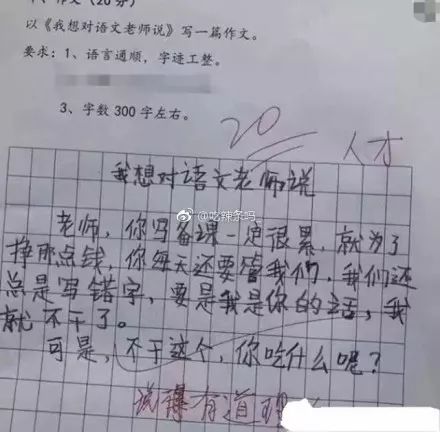 作文（20分）
以《我想对语文老师说》写一篇作文。
要求：1、语言通顺，字迹工整。
3、字数300字左右。
20
人才
我想对语文老师说
@吃辣条吗
老师，你写备课一定很累，就为了
挣那点钱，你每天还要管我们，我们还
总是写错字，要是我是你的话，我
就不干了。
可是，不干这个，你吃什么呢？
说得有道理